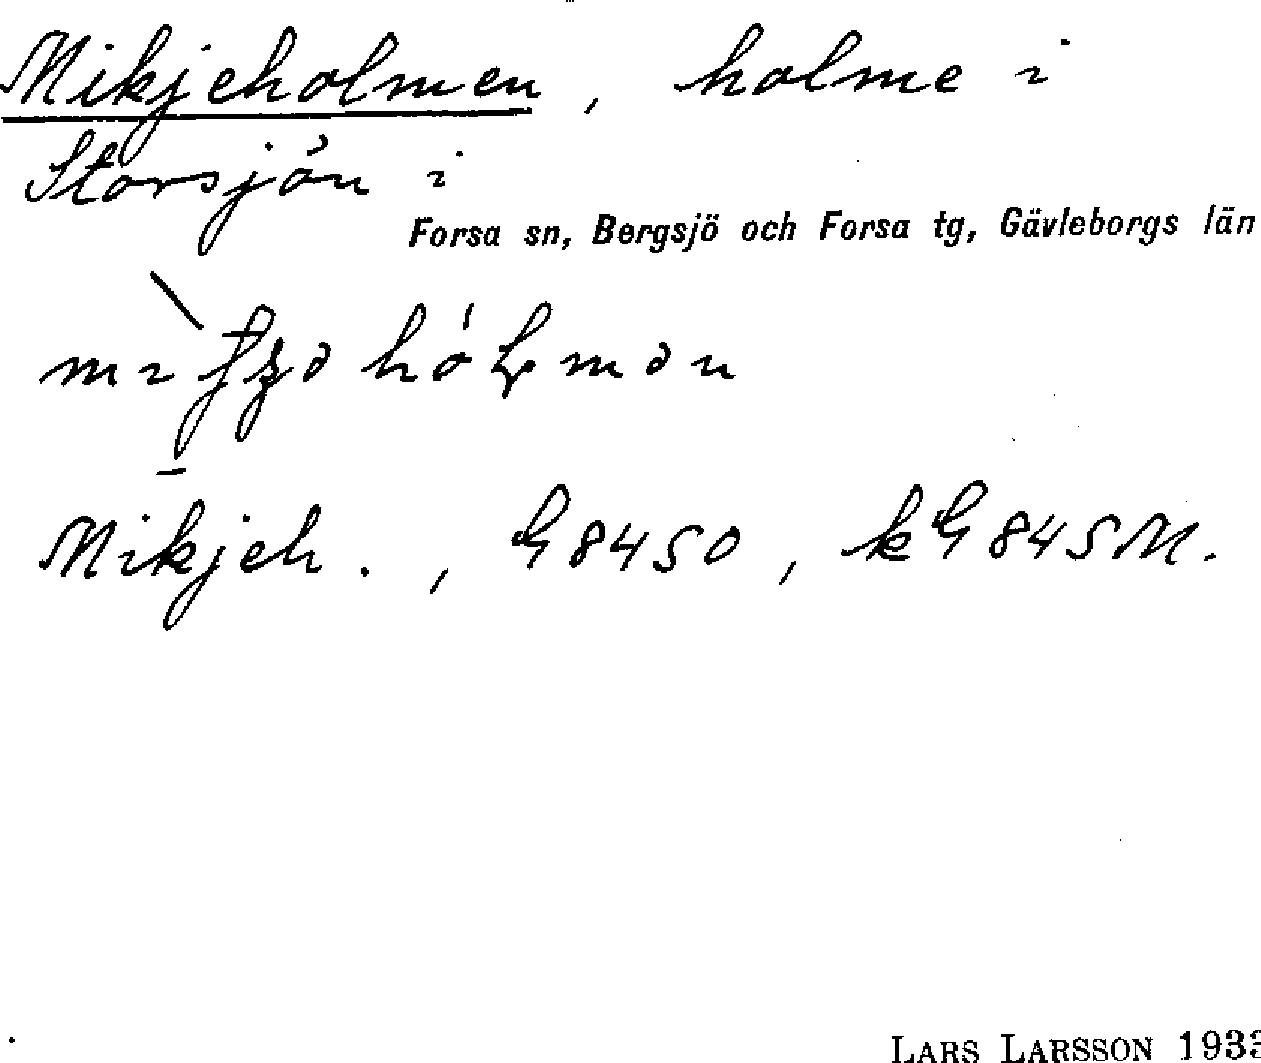 Mikjeholmen, holme i
Storsjön i
Forsa sn, Bergsjö och Forsa tg, Gävleborgs län
Mikjeh., G8450, kG845M.
LARS LARSSON 193